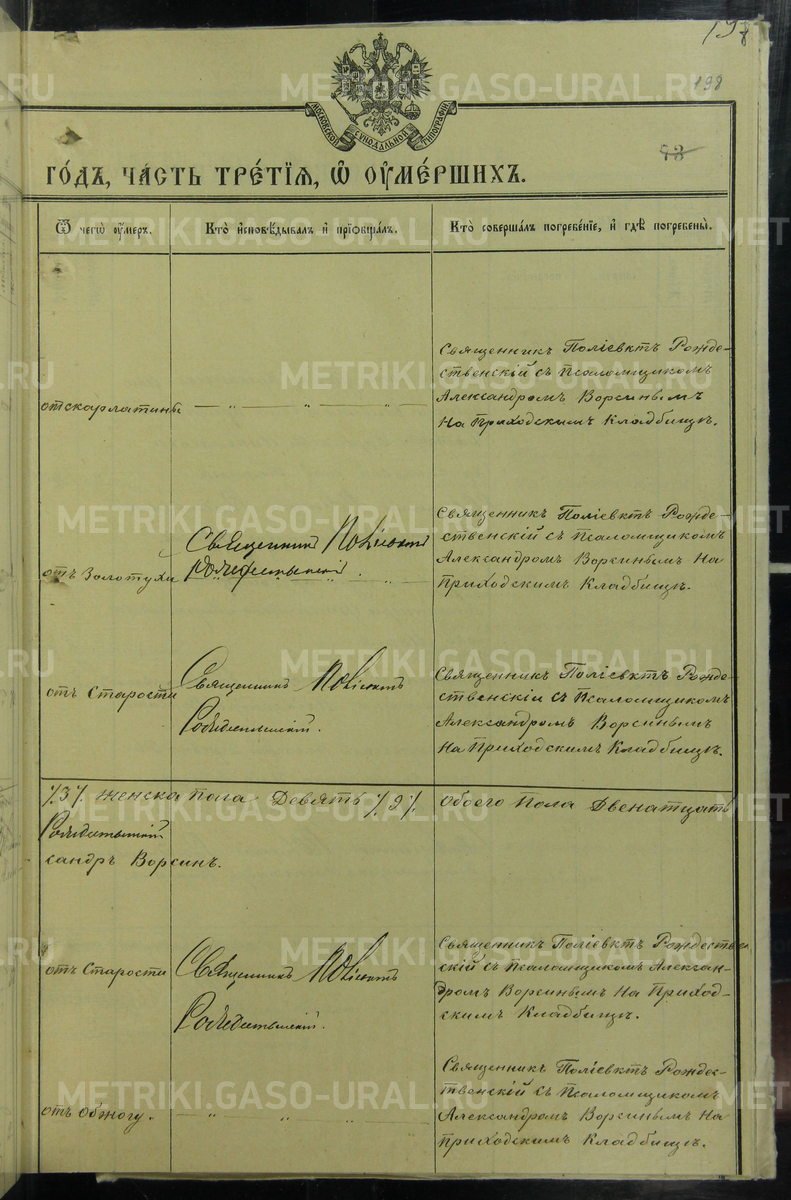 198
МОСКОВСКОЙ СѴНОДАЛЬНОЙ ТИПОГРАФІИ
го́дъ, ча́сть тре́тїѧ, ѡ҆ ᲂу҆ме́ршихъ.
Ѿ чегѡ̀ ᲂу҆́меръ.
Кто̀ и҆сповѣ́дывалъ и҆ прїѡбща́лъ.
Кто̀ соверша́лъ погребе́нїе, и҆ гдѣ̀ погребены̀.
отскарлатины
Священникъ Поліевктъ Рожде-
ственскій съ Псаломщикомъ
Александромъ Ворсинымъ
На Приходскимъ Кладбищъ.
отъ Золотухи
Священникъ Поліевктъ
Рождественскій
Священникъ Поліевктъ Рожде-
ственскій съ Псаломщикомъ
Александромъ Ворсинымъ На
Приходскимъ Кладбищъ.
отъ Старости
Священникъ Поліевктъ
Рождественскій.
Священникъ Поліевктъ Рожде-
ственскій съ Псаломщикомъ
Александромъ Ворсинымъ
На Приходскимъ Кладбищъ.
/.3/. женска пола Девять /.9/. обоего Пола Двенатцать
Рождественскій
сандръ Ворсинъ.
отъ Старости
Священникъ Поліевктъ
Рождественскій.
Священникъ Поліевктъ Рождествен
скій съ Псаломщикомъ Алексан-
дромъ Ворсинымъ На Приход-
скимъ Кладбищъ.
отъ обжогу.
Священникъ Поліевктъ Рождес-
твенскій съ Псаломщикомъ
Александромъ Ворсинымъ На
Приходскимъ Кладбищъ.
METRIKI.GASO-URAL.RU